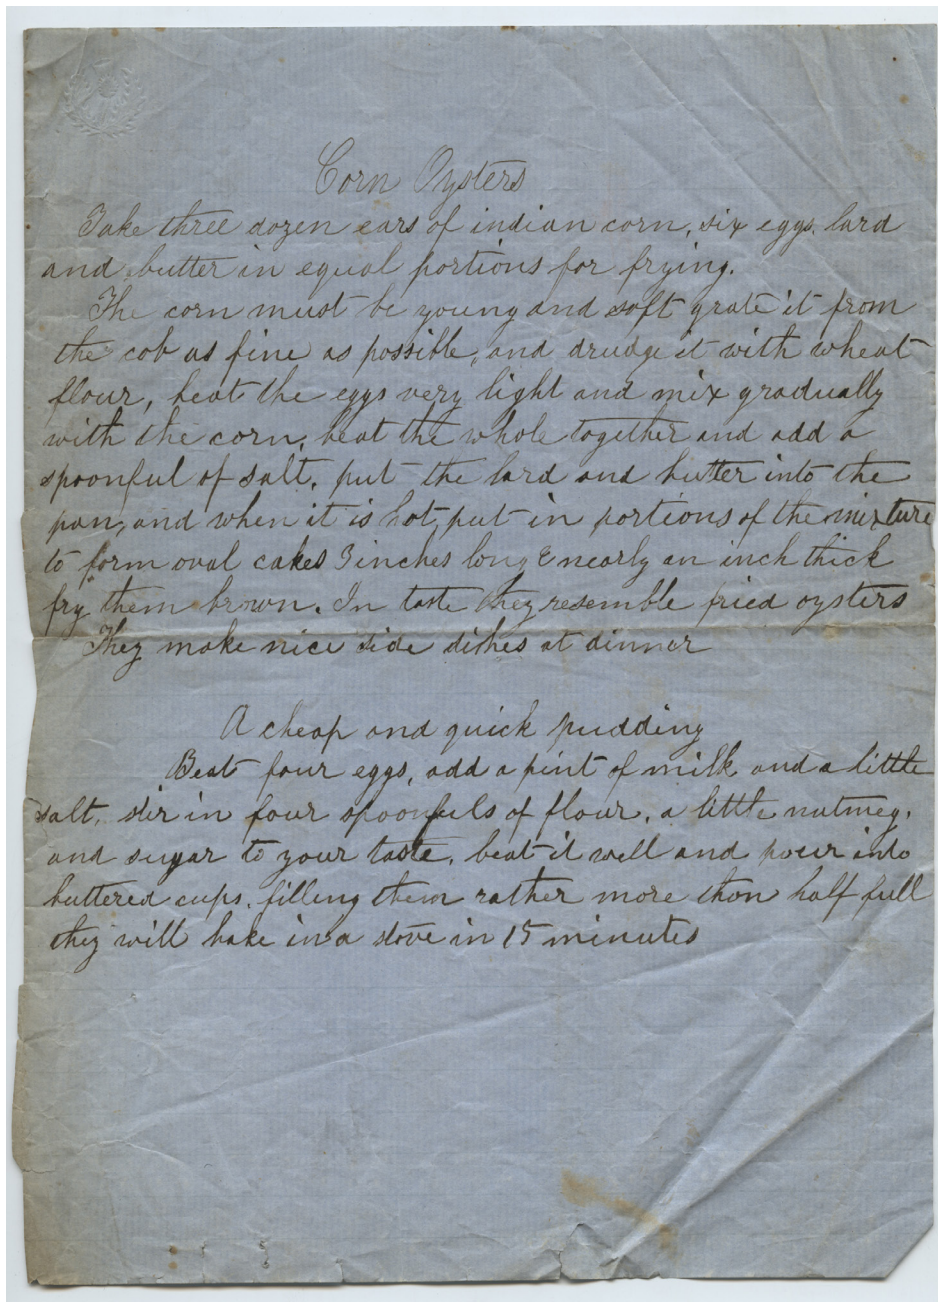 Corn Oysters
Take three dozen ears of indian corn, six eggs, lard
and butter in equal portions for frying.
The corn must be young and soft grate it from
the cob as fine as possible, and drudge it with wheat
flour, beat the eggs very light and mix gradually
with the corn, beat the whole together and add a
spoonful of salt, put the lard and butter into the
pan, and when it is hot, put in portions of the mixture
to form oval cakes 3 inches long & nearly an inch thick
fry them brown. In taste they resemble fried oysters
They make nice side dishes at dinner
A cheap and quick pudding
Beat four eggs, add a pint of milk and a little
salt, stir in four spoonfuls of flour, a little nutmeg,
and sugar to your taste, beat it well and pour into
buttered cups, filling them rather more than half full
they will bake in a stove in 15 minutes